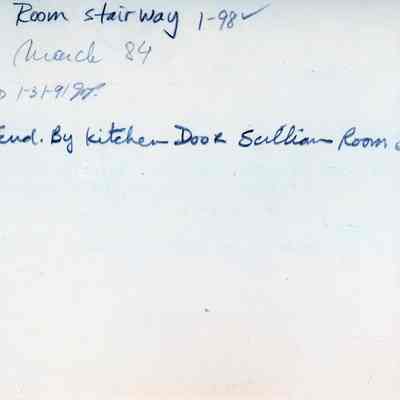 Room stairway 1-98✓
March 84
1-31-91
End. By kitchen Door Sullivan Room